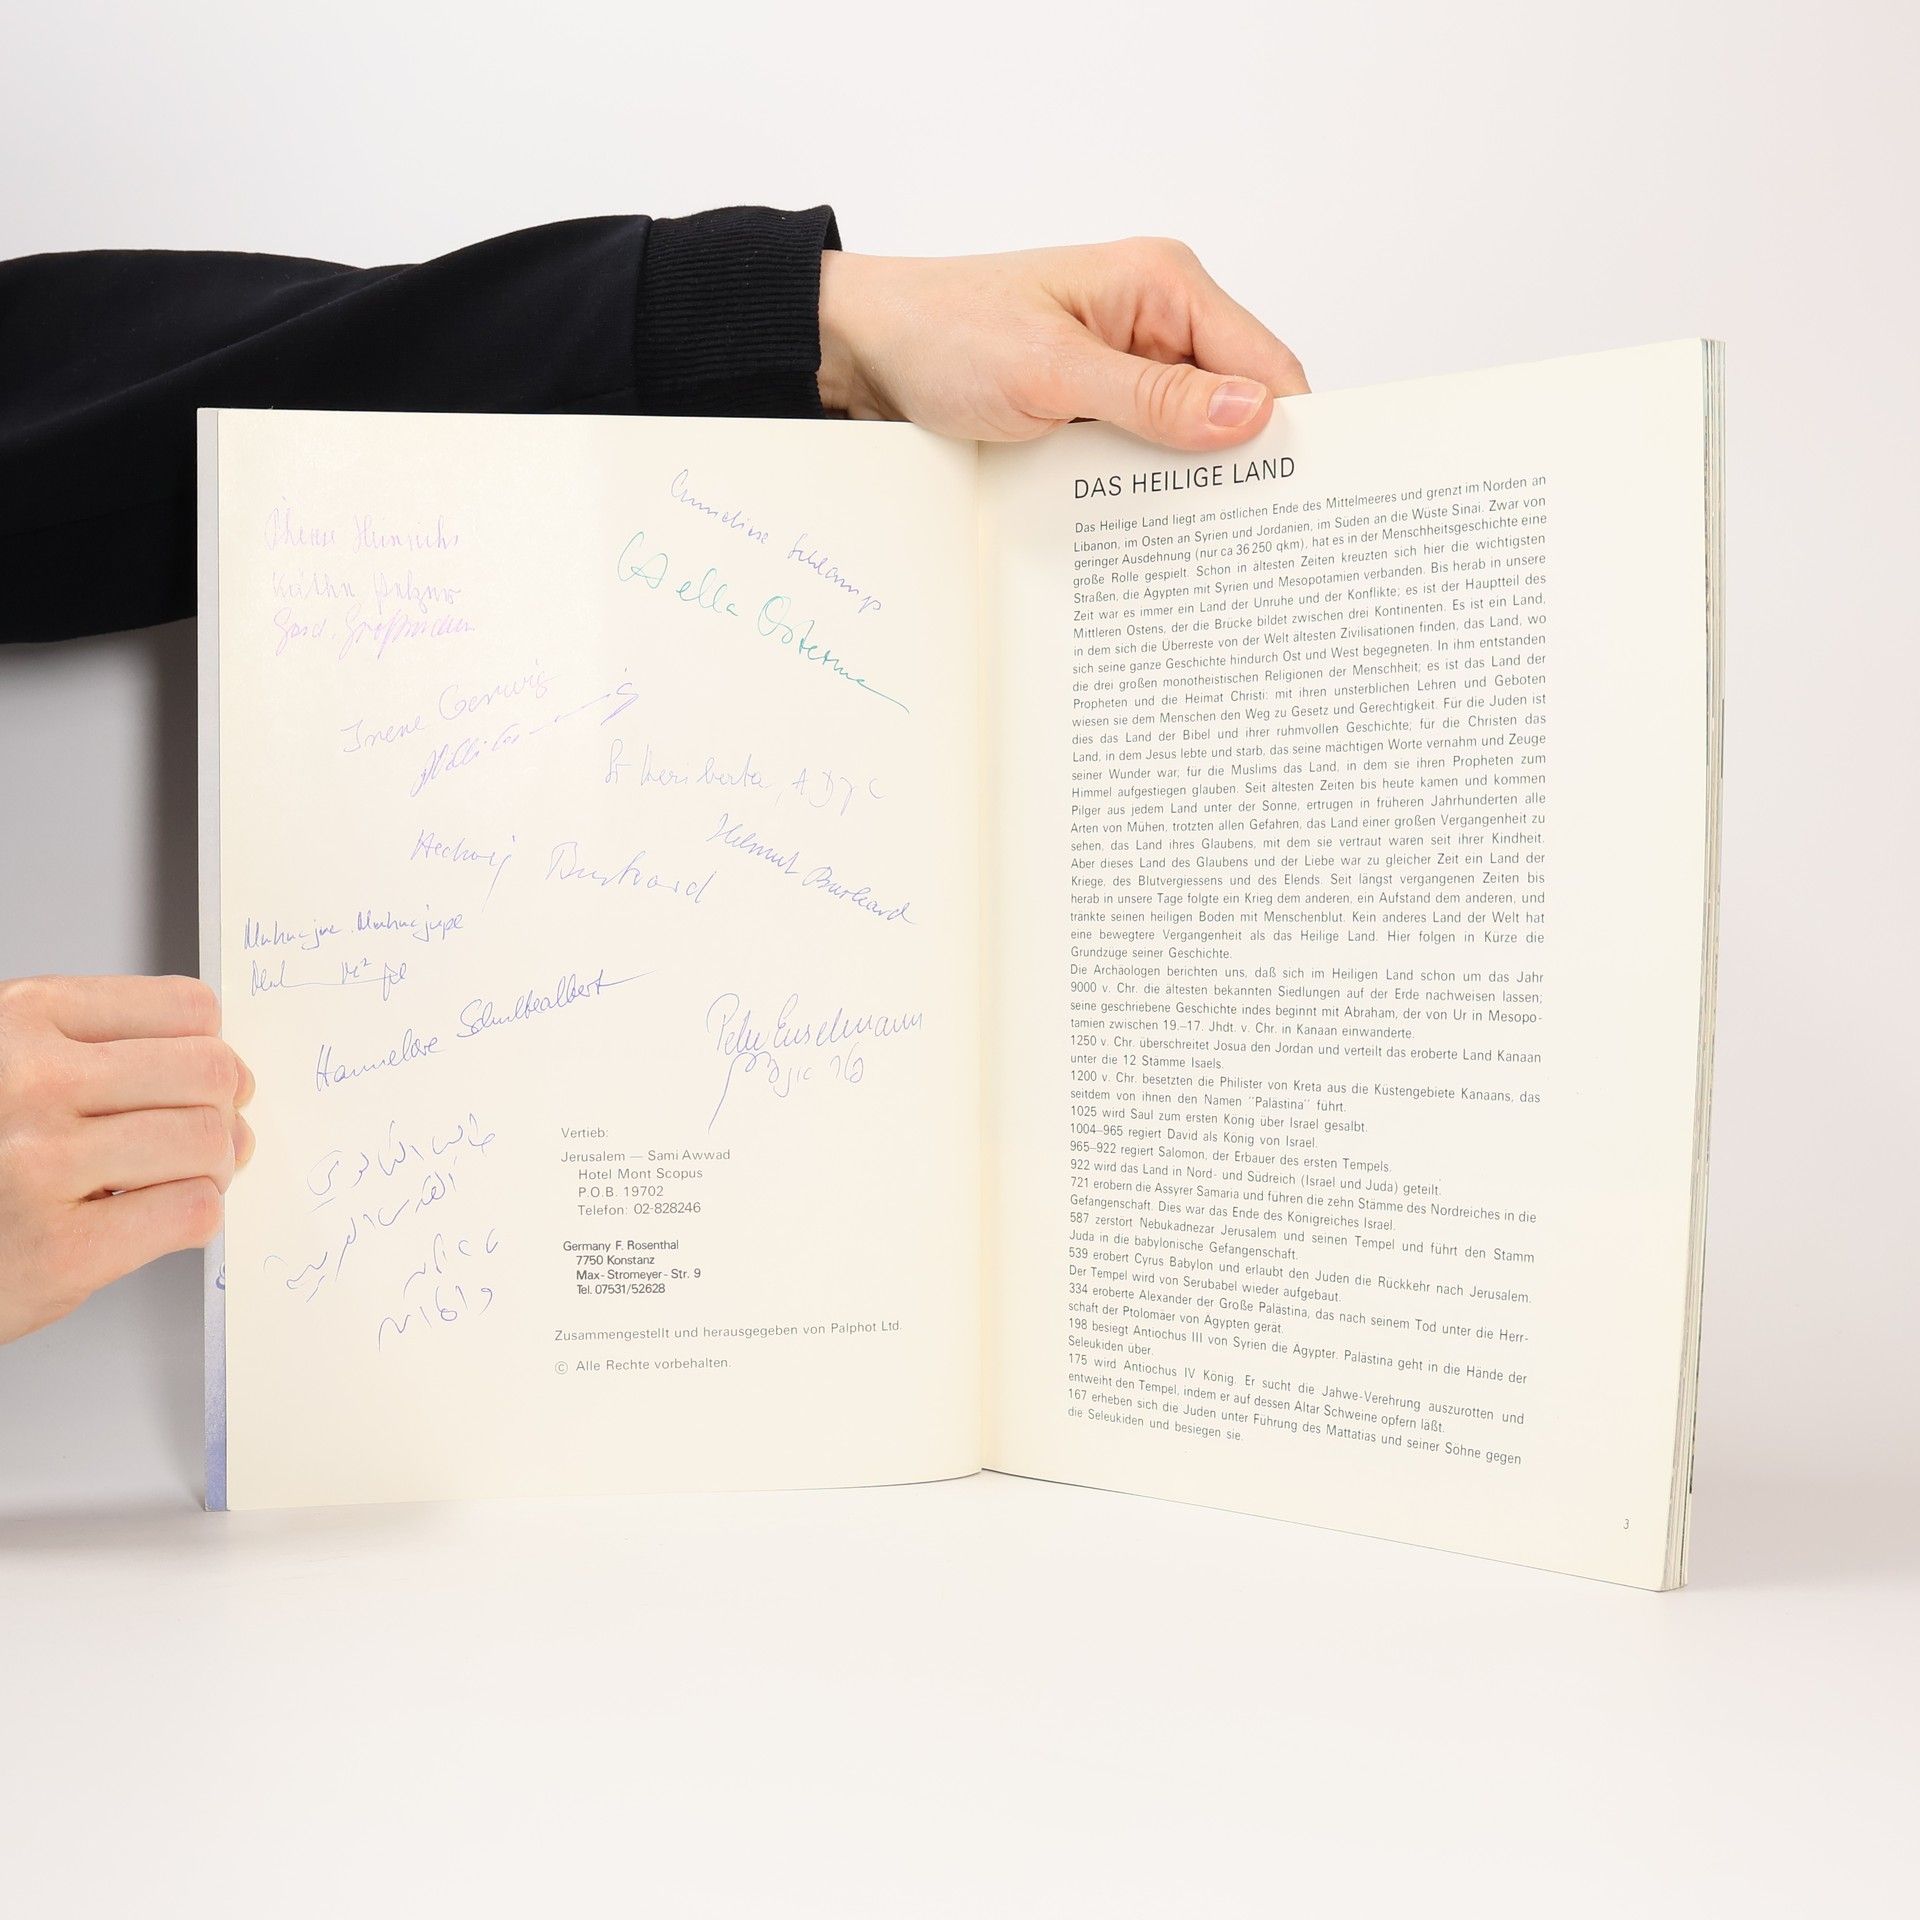 Therese Heinrichs
Käthe
Irene Gerwig
Anneliese Schlamp
Sella Osterma
Sr Heriberta, ADJC
Hedwig Burkard
Helmut Burkard
Hannelore Schultealbert
Peter Enselmann
Vertieb:
Jerusalem — Sami Awwad
Hotel Mont Scopus
P.O.B. 19702
Telefon: 02-828246
Germany F. Rosenthal
7750 Konstanz
Max-Stromeyer-Str. 9
Tel. 07531/52628
Zusammengestellt und herausgegeben von Palphot Ltd.
© Alle Rechte vorbehalten.
DAS HEILIGE LAND
Das Heilige Land liegt am östlichen Ende des Mittelmeeres und grenzt im Norden an
Libanon, im Osten an Syrien und Jordanien, im Süden an die Wüste Sinai. Zwar von
geringer Ausdehnung (nur ca 36 250 qkm), hat es in der Menschheitsgeschichte eine
große Rolle gespielt. Schon in ältesten Zeiten kreuzten sich hier die wichtigsten
Straßen, die Agypten mit Syrien und Mesopotamien verbanden. Bis herab in unsere
Zeit war es immer ein Land der Unruhe und der Konflikte; es ist der Hauptteil des
Mittleren Ostens, der die Brücke bildet zwischen drei Kontinenten. Es ist ein Land,
in dem sich die Überreste von der Welt ältesten Zivilisationen finden, das Land, wo
sich seine ganze Geschichte hindurch Ost und West begegneten. In ihm entstanden
die drei großen monotheistischen Religionen der Menschheit; es ist das Land der
Propheten und die Heimat Christi: mit ihren unsterblichen Lehren und Geboten
wiesen sie dem Menschen den Weg zu Gesetz und Gerechtigkeit. Für die Juden ist
dies das Land der Bibel und ihrer ruhmvollen Geschichte; für die Christen das
Land, in dem Jesus lebte und starb, das seine mächtigen Worte vernahm und Zeuge
seiner Wunder war; für die Muslims das Land, in dem sie ihren Propheten zum
Himmel aufgestiegen glauben. Seit ältesten Zeiten bis heute kamen und kommen
Pilger aus jedem Land unter der Sonne, ertrugen in früheren Jahrhunderten alle
Arten von Mühen, trotzten allen Gefahren, das Land einer großen Vergangenheit zu
sehen, das Land ihres Glaubens, mit dem sie vertraut waren seit ihrer Kindheit.
Aber dieses Land des Glaubens und der Liebe war zu gleicher Zeit ein Land der
Kriege, des Blutvergiessens und des Elends. Seit längst vergangenen Zeiten bis
herab in unsere Tage folgte ein Krieg dem anderen, ein Aufstand dem anderen, und
tränkte seinen heiligen Boden mit Menschenblut. Kein anderes Land der Welt hat
eine bewegtere Vergangenheit als das Heilige Land. Hier folgen in Kürze die
Grundzuge seiner Geschichte.
Die Archäologen berichten uns, daß sich im Heiligen Land schon um das Jahr
9000 v. Chr. die ältesten bekannten Siedlungen auf der Erde nachweisen lassen;
seine geschriebene Geschichte indes beginnt mit Abraham, der von Ur in Mesopo-
tamien zwischen 19.–17. Jhdt. v. Chr. in Kanaan einwanderte.
1250 v. Chr. überschreitet Josua den Jordan und verteilt das eroberte Land Kanaan
unter die 12 Stämme Isaels.
1200 v. Chr. besetzten die Philister von Kreta aus die Küstengebiete Kanaans, das
seitdem von ihnen den Namen "Palästina" führt.
1025 wird Saul zum ersten König über Israel gesalbt.
1004–965 regiert David als König von Israel.
965–922 regiert Salomon, der Erbauer des ersten Tempels.
922 wird das Land in Nord- und Südreich (Israel und Juda) geteilt.
721 erobern die Assyrer Samaria und führen die zehn Stämme des Nordreiches in die
Gefangenschaft. Dies war das Ende des Königreiches Israel.
587 zerstört Nebukadnezar Jerusalem und seinen Tempel und führt den Stamm
Juda in die babylonische Gefangenschaft.
539 erobert Cyrus Babylon und erlaubt den Juden die Rückkehr nach Jerusalem.
Der Tempel wird von Serubabel wieder aufgebaut.
334 eroberte Alexander der Große Palästina, das nach seinem Tod unter die Herr-
schaft der Ptolomäer von Agypten gerät.
198 besiegt Antiochus III von Syrien die Agypter. Palästina geht in die Hände der
Seleukiden über.
175 wird Antiochus IV König. Er sucht die Jahwe-Verehrung auszurotten und
entweiht den Tempel, indem er auf dessen Altar Schweine opfern läßt.
167 erheben sich die Juden unter Führung des Mattatias und seiner Söhne gegen
die Seleukiden und besiegen sie.
3